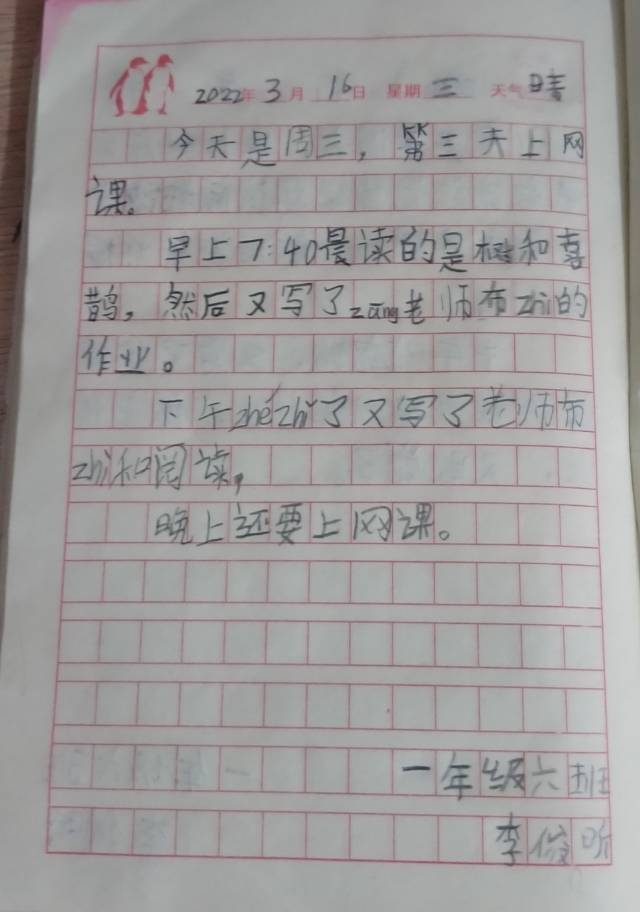 2022年3月16日 星期三 天气晴
今天是周三，第三天上网
课。
早上7:40晨读的是树和喜
鹊，然后又写了zāng老师布zhì的
作业。
下午zhézhǐ了又写了老师布
zhì和阅读，
晚上还要上网课。
一年级六班
李俊昕